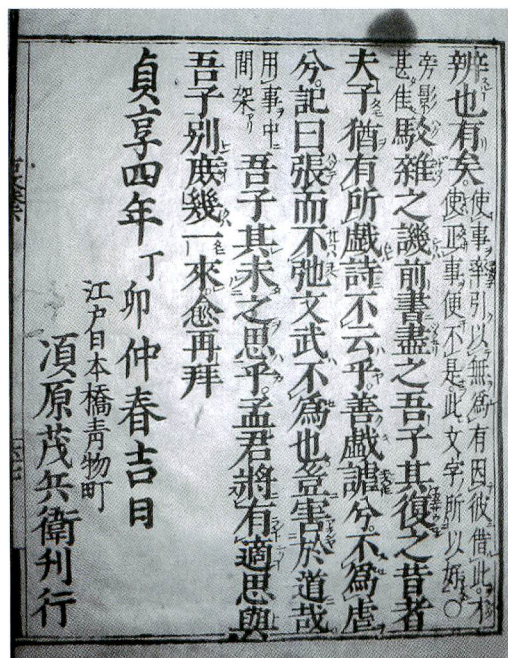 辨也有矣使事牽引以無爲有因彼借此才使正事便不是此文字所以好○
旁影甚佳駁雜之譏前書盡之吾子其復之昔者
夫子猶有所戲詩不云乎善戲謔兮不爲虐
兮記曰張而不弛文武不爲也豈害於道哉
用事中間架吾子其未之思乎孟君將有適思與
吾子別庶幾一來愈再拜
貞享四年丁卯仲春吉日
江戸日本橋青物町
須原茂兵衛刊行